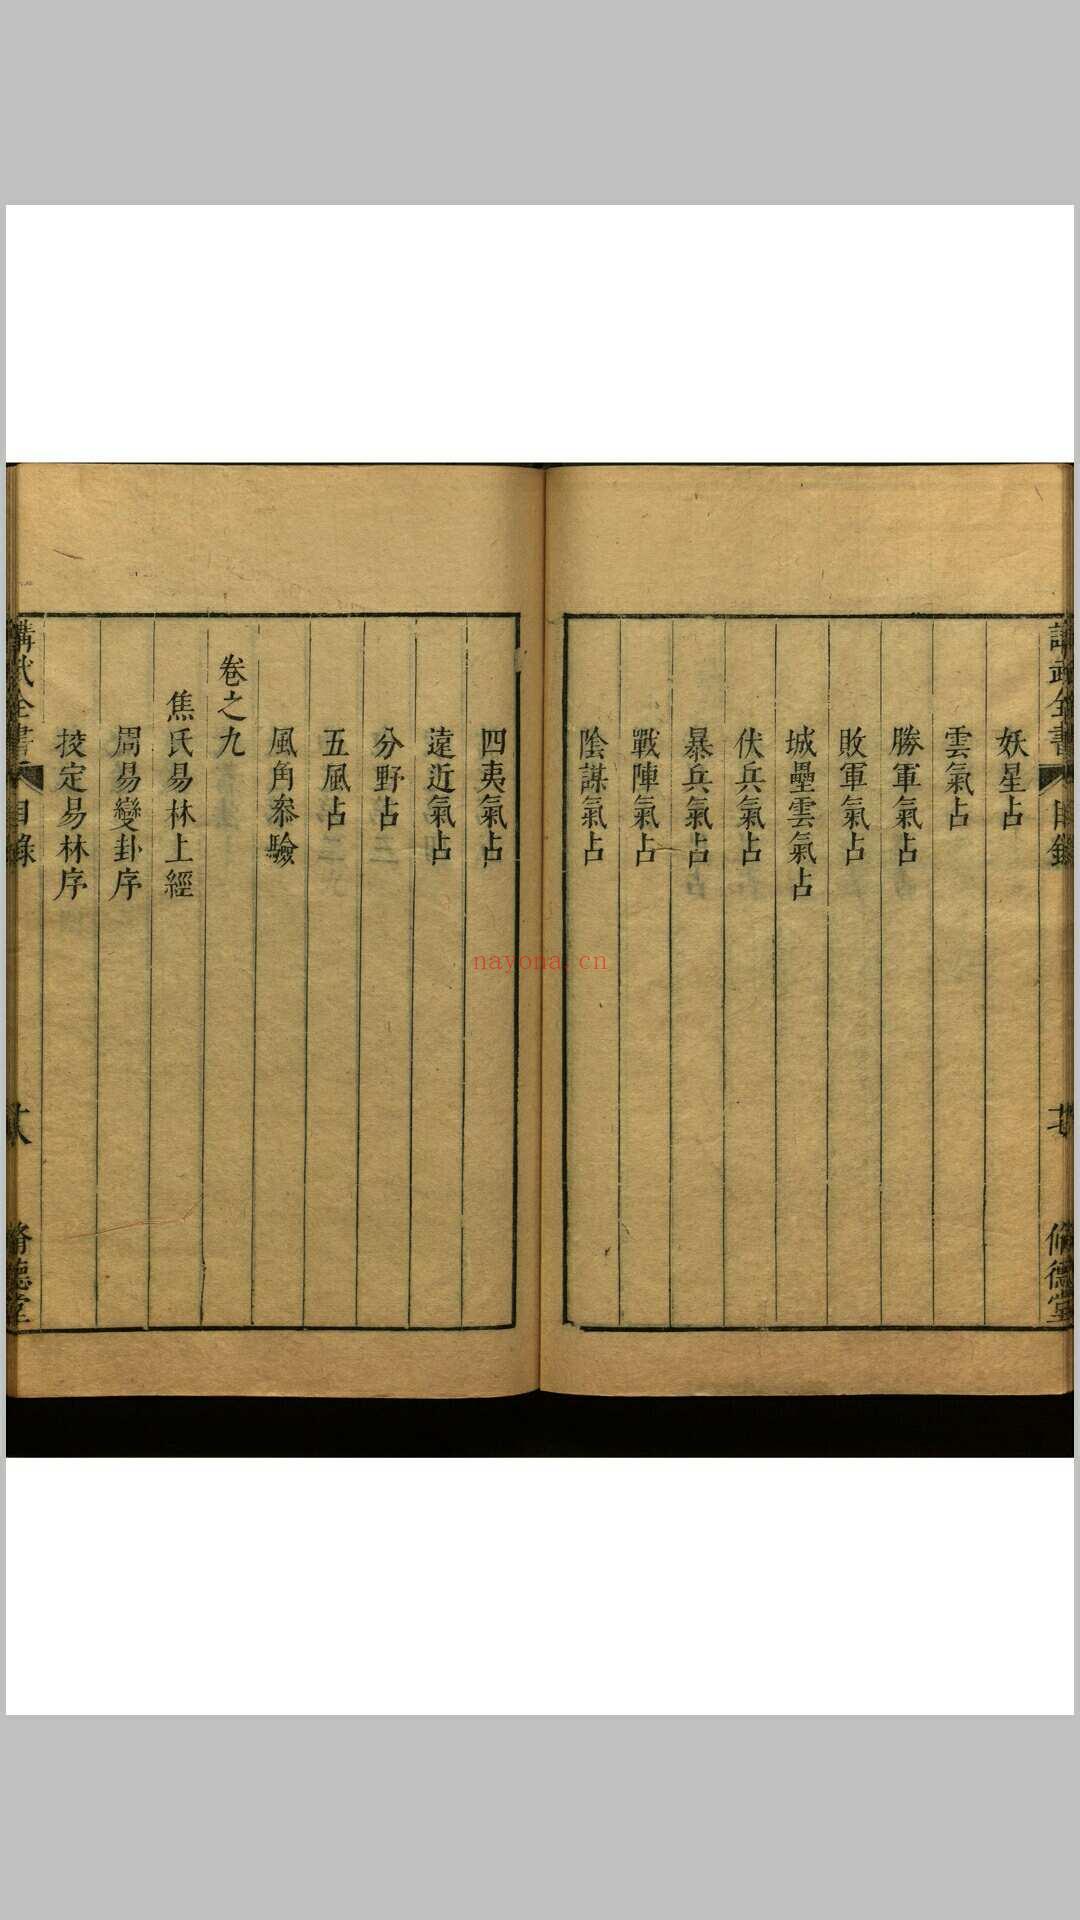 講武全書
目錄
脩德堂
妖星占
雲氣占
勝軍氣占
敗軍氣占
城壘雲氣占
伏兵氣占
暴兵氣占
戰陣氣占
陰謀氣占
四夷氣占
遠近氣占
分野占
五風占
風角叅驗
卷之九
焦氏易林上經
周易變卦序
挍定易林序
講武全書
目錄
脩德堂
nayona.cn